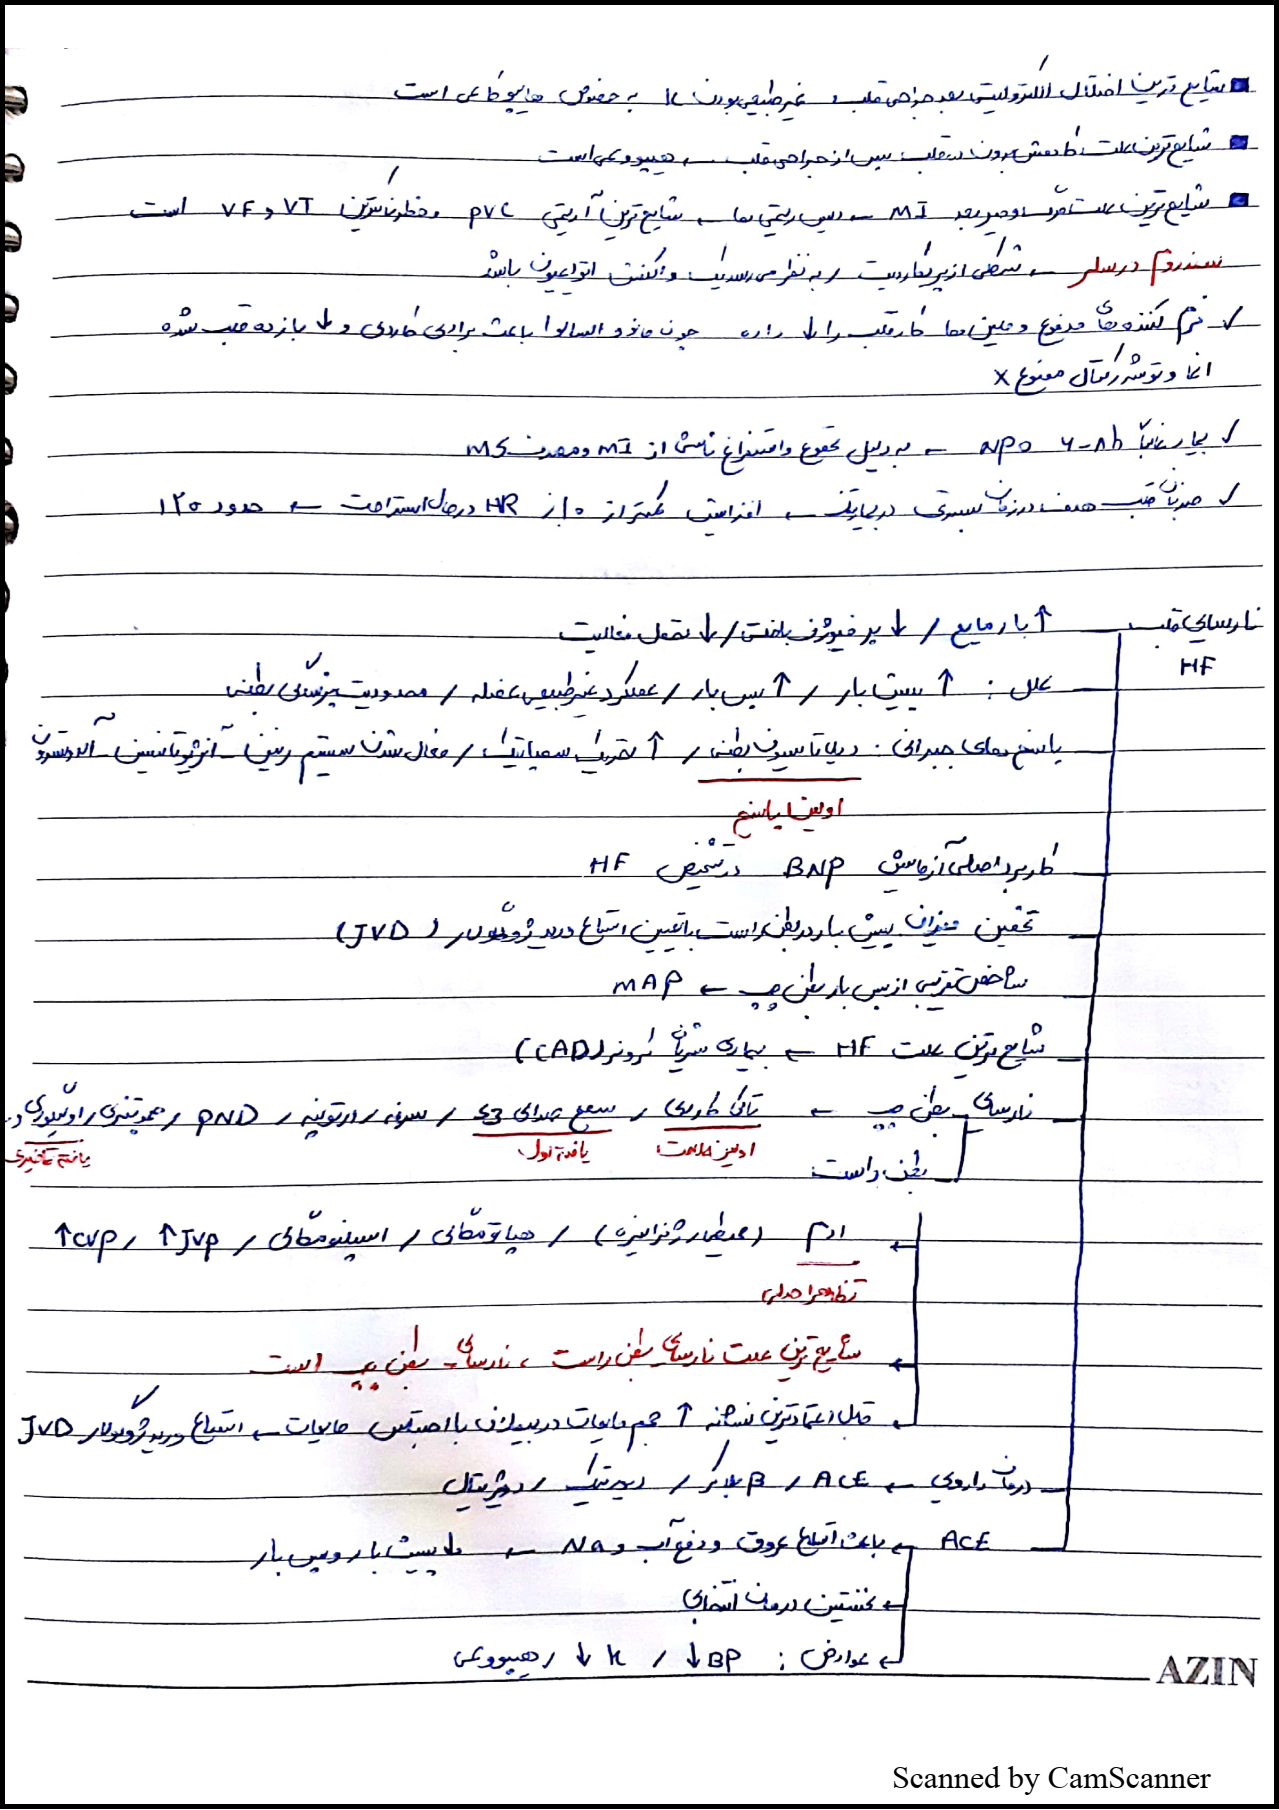 شایع ترین اختلال الکترولیتی بعد جراحی قلب، غیرطبیعی بودن K به خصوص هایپوکالمی است
شایع ترین علت کاهش برون ده قلب پس از جراحی قلب ← هیپوولمی است
شایع ترین علت مرگ و میر بعد MI ← دیس ریتمی ها ← شایع ترین آریتمی PVC و خطرناکترین VT و VF است
سندروم درسلر ← شکلی از پریکاردیت / به نظر می رسد یک واکنش اتوایمیون باشد
✓ نرم کننده های مدفوع و ملین ها کار قلب را ↓ داده چون مانور والسالوا باعث برادی کاردی و ↓ بازده قلب شده
انما و توشه رکتال ممنوع X
✓ بیمار غالباً ۴-۸h NPO ← به دلیل تهوع و استفراغ ناشی از MI و مصرف MS
✓ ضربان قلب هدف در زمان بستری در بیمارستان ← افزایش کمتر از ۱۰٪ HR در حال استراحت ← حدود ۱۲۰
نارسایی قلب HF
↑ بار مایع / ↓ پرفیوژن بافتی / ↓ تحمل فعالیت
علل : ↑ پیش بار / ↑ پس بار / عملکرد غیرطبیعی عضله / محدودیت پرشدگی بطنی
پاسخ های جبرانی : دیلاتاسیون بطنی / ↑ تحریک سمپاتیک / فعال شدن سیستم رنین - آنژیوتانسین - آلدوسترون
اولین پاسخ
کاربرد اصلی آزمایش BNP در تشخیص HF
تخمین میزان پیش بار در بطن راست با تعیین اتساع ورید ژوگولار (JVD)
شاخص تقریبی از پس بار بطن چپ ← MAP
شایع ترین علت HF ← بیماری شریان کرونر (CAD)
نارسایی بطن چپ ← تاکی کاردی / سمع صدای S3 / سرفه / ارتوپنه / PND / عدم تنفسی / اولیگوری و..
اولین علامت یافته اول یافته تأخیری
بطن راست
← ادم (محیطی / ژنرالیزه) / هپاتومگالی / اسپلنومگالی / ↑JVP / ↑CVP
تظاهر اصلی
← شایع ترین علت نارسایی بطن راست ، نارسایی بطن چپ است
← قابل اعتمادترین نشانه ↑ حجم مایعات در بیماران با احتباس مایعات ← اتساع ورید ژوگولار JVD
درمان دارویی ← ACE / β بلاکر / دیورتیک / دیژیتال
ACE ← باعث اتساع عروق و دفع آب و Na ← ↓ پیش بار و پس بار
← نخستین درمان انتخابی
← عوارض : ↓BP / ↓K / هیپوولمی
AZIN
Scanned by CamScanner